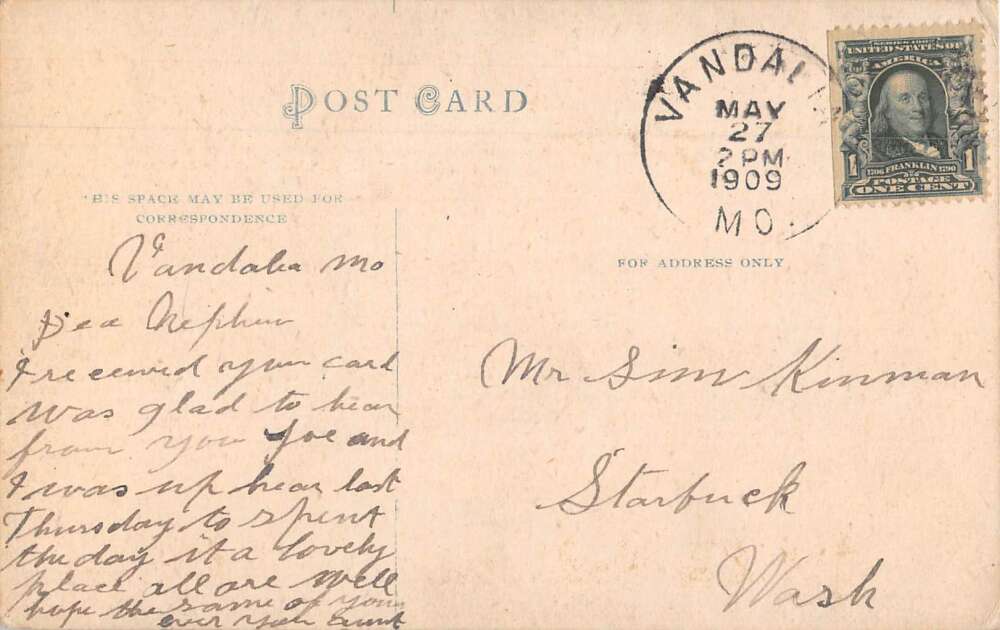 POST CARD
VANDALIA
MAY
27
2 PM
1909
MO.
SERIES 1902
UNITED STATES OF
AMERICA
1 1
1706 FRANKLIN 1790
POSTAGE
ONE CENT
THIS SPACE MAY BE USED FOR
CORRESPONDENCE
FOR ADDRESS ONLY
Vandalia Mo
Dea Nephew
I received your card
was glad to hear
from you Joe and
I was up hear last
Thursday to spent
the day it a lovely
place all are well
hope the same of you
ever your aunt
Mr Sim Kinman
Starbuck
Wash